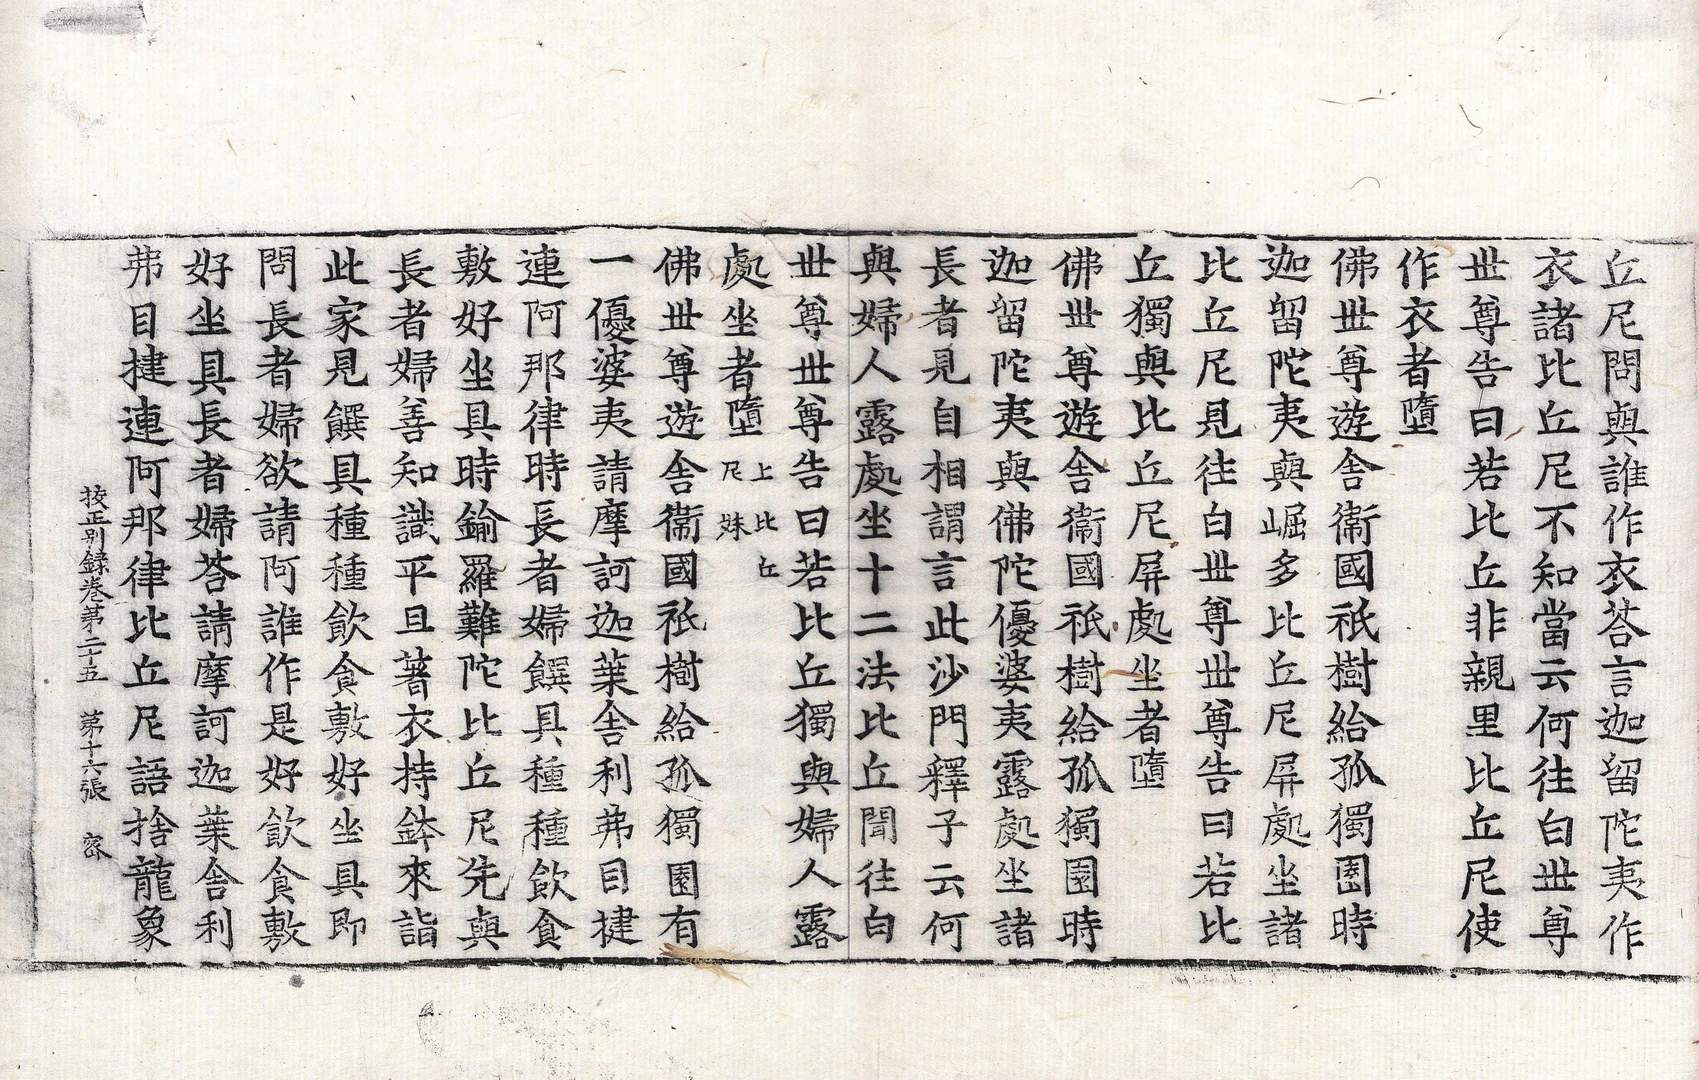 丘尼問與誰作衣荅言迦留陀夷作
衣諸比丘尼不知當云何往白世尊
世尊告曰若比丘非親里比丘尼使
作衣者墮
佛世尊遊舍衞國祇樹給孤獨園時
迦留陀夷與崛多比丘尼屏處坐諸
比丘尼見往白世尊世尊告曰若比
丘獨與比丘尼屏處坐者墮
佛世尊遊舍衞國祇樹給孤獨園時
迦留陀夷與佛陀優婆夷露處坐諸
長者見自相謂言此沙門釋子云何
與婦人露處坐十二法比丘聞往白
世尊世尊告曰若比丘獨與婦人露
處坐者墮 上比丘尼妹
佛世尊遊舍衞國祇樹給孤獨園有
一優婆夷請摩訶迦葉舍利弗目揵
連阿那律時長者婦饌具種種飲食
敷好坐具時鍮羅難陀比丘尼先與
長者婦善知識平旦著衣持鉢來詣
此家見饌具種種飲食敷好坐具即
問長者婦欲請阿誰作是好飲食敷
好坐具長者婦荅請摩訶迦葉舍利
弗目揵連阿那律比丘尼語捨龍象
挍正別録卷第二十五 第十六張 宻